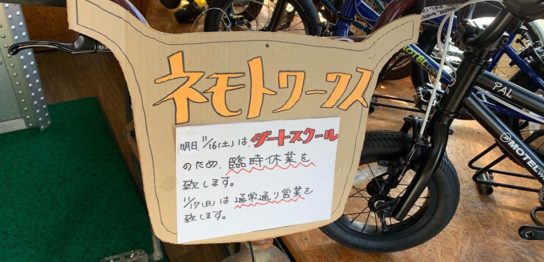 ネモトワークス
明日 11/16(土)は、ダートスクール
のため、臨時休業を
致します。
11/17(日)は通常通り営業を
致します。
PAL
MOTEL